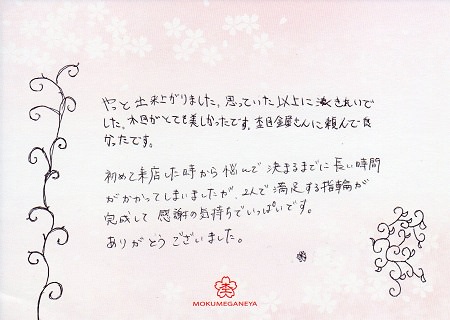 やっと出来上がりました。思っていた以上にきれいで
した。木目がとても美しかったです。杢目金屋さんに頼んで良
かったです。
初めて来店した時から悩んで決まるまでに長い時間
がかかってしまいましたが、2人で満足する指輪が
完成して感謝の気持ちでいっぱいです。
ありがとうございました。
MOKUMEGANEYA